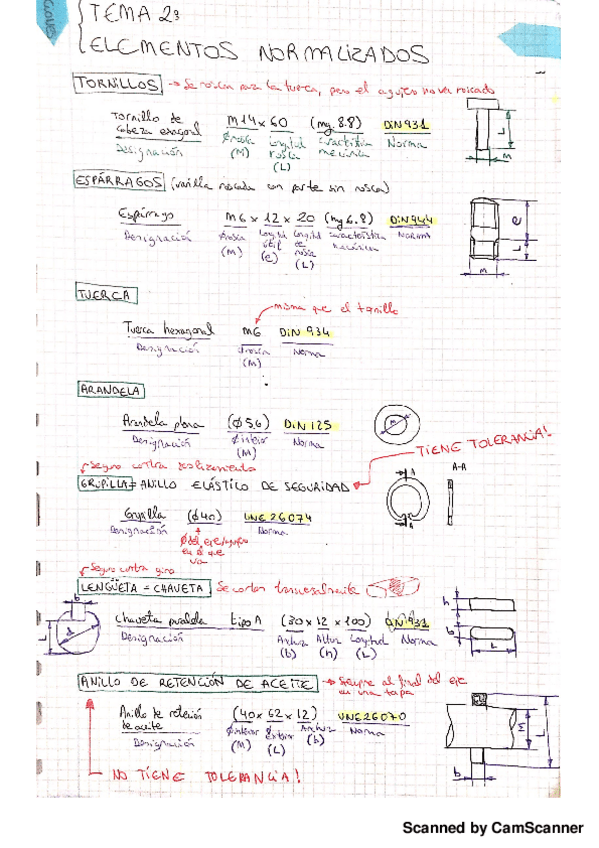 TEMA 2:
ELEMENTOS NORMALIZADOS
TORNILLOS → Se roscan para la tuerca, pero el agujero no va roscado
Tornillo de cabeza exagonal M14 x 60 (mg. 8.8) DIN 931
Designación Ørosca (M) Longitud rosca (L) característica mecánica Norma
L
M
ESPÁRRAGOS (varilla roscada con parte sin rosca)
Espárrago M6 x 12 x 20 (mg 6.8) DIN 944
Designación Ørosca (M) Longitud útil (e) Longitud de rosca (L) característica mecánica Norma
e
L
M
TUERCA
misma que el tornillo
Tuerca hexagonal M6 DIN 934
Designación Ørosca (M) Norma
ARANDELA
Arandela plana (Ø 5,6) DIN 125
Designación Ø interior (M) Norma
M
TIENE TOLERANCIA!
Seguro contra deslizamiento
GRUPILLA = ANILLO ELÁSTICO DE SEGURIDAD
A
A-A
A
Grupilla (Ø40) UNE 26074
Designación Ø del eje/agujero en el que va Norma
Seguro contra giro
LENGÜETA = CHAVETA Se cortan transversalmente
b
L
Chaveta paralela tipo A (20 x 12 x 100) DIN 931
Designación Anchura (b) Altura (h) Longitud (L) Norma
h
b
L
ANILLO DE RETENCIÓN DE ACEITE → Siempre al final del eje en una tapa
Anillo de retención de aceite (40 x 62 x 12) UNE 26070
Designación Øinterior (M) Øexterior (L) Anchura (b) Norma
M
L
b
NO TIENE TOLERANCIA!
Scanned by CamScanner